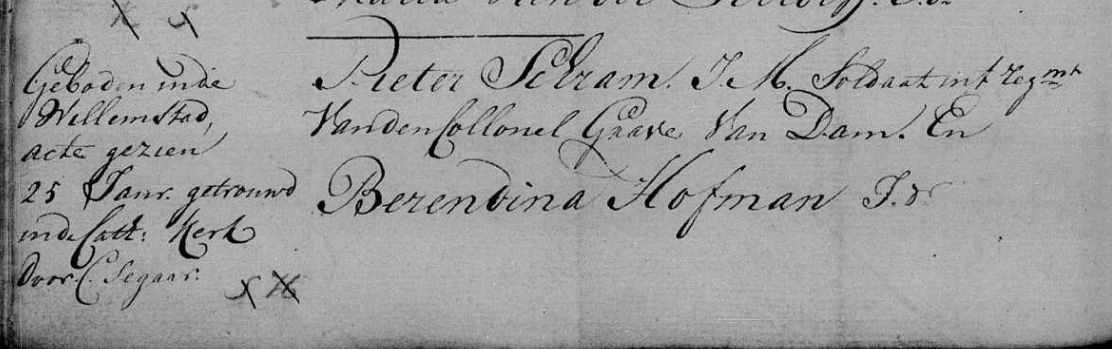 Geboden in die
Willemstad,
acte gezien
25 Janr. getrouwd
in de Cath: Kerk
door C. Segaar.
Pieter Schram. J. M. Soldaat int Regmt
Van den Collonel Graave Van Dam. En
Berendina Hofman J. d